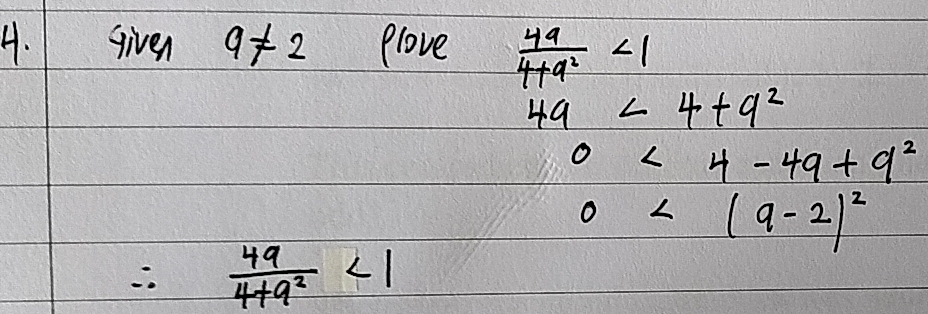 4. Given a ≠ 2 Prove 4a/(4+a²) < 1
4a < 4 + a²
0 < 4 - 4a + a²
0 < (a - 2)²
∴ 4a/(4+a²) < 1